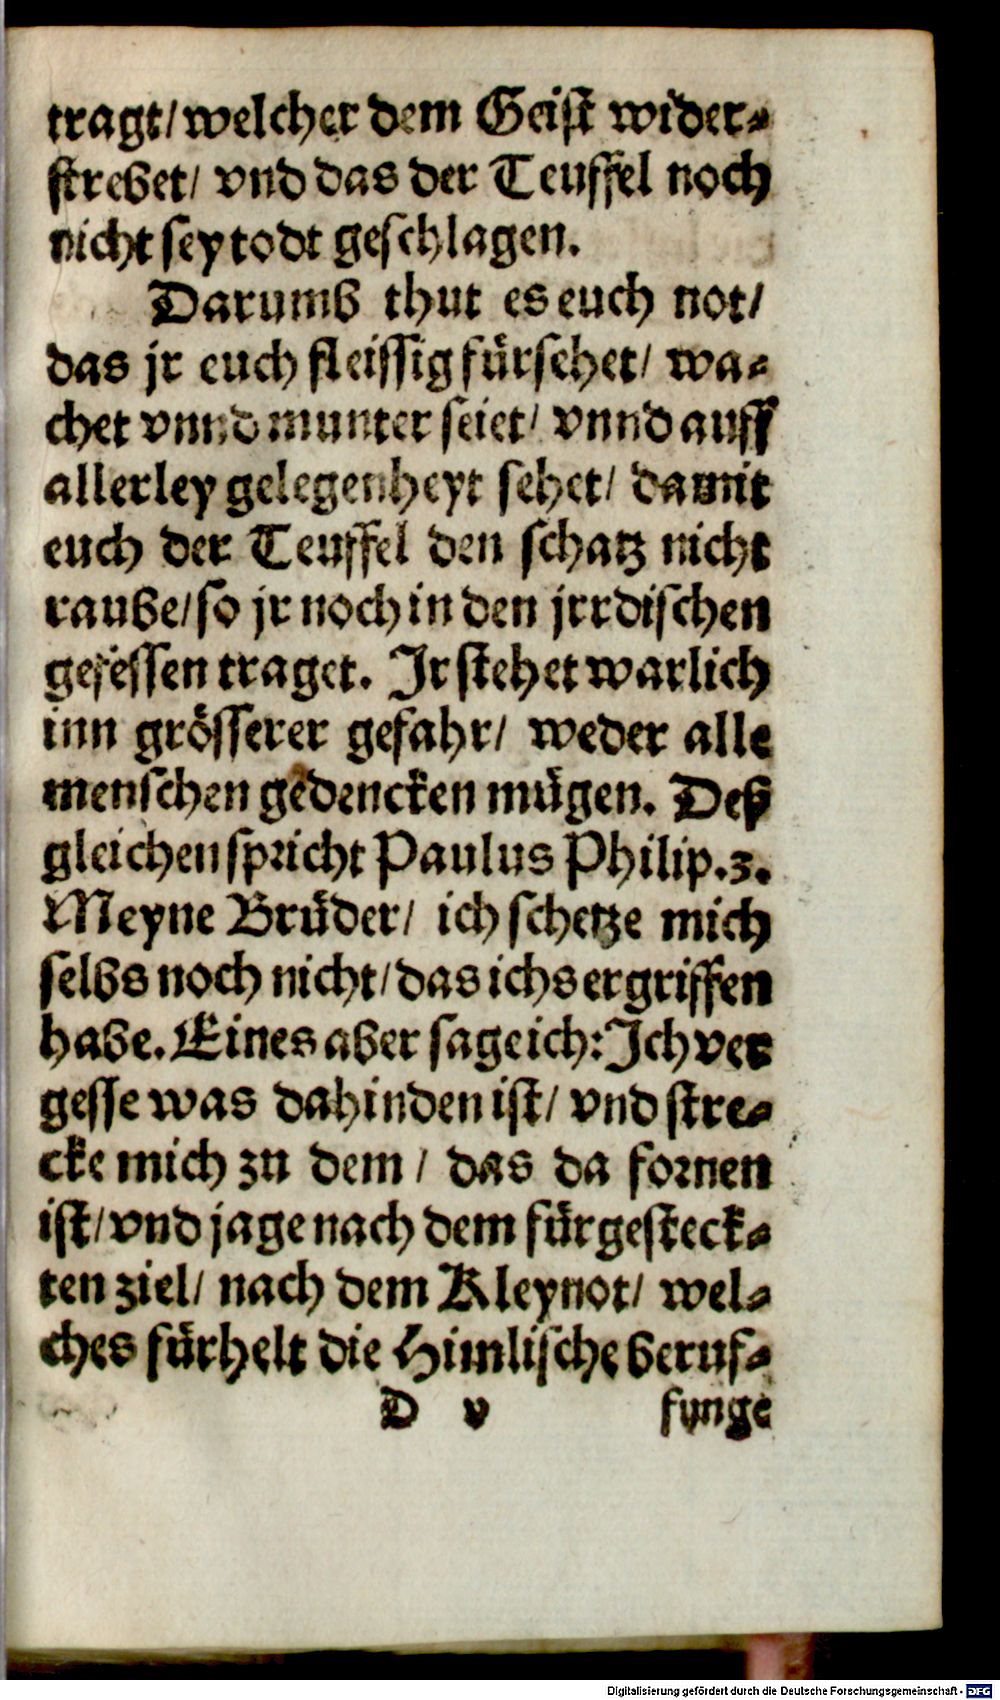 tragt/ welcher dem Geist wider⸗
strebet/ vnd das der Teuffel noch
nicht sey todt geschlagen.
Darumb thut es euch not/
das jr euch fleissig fürsehet/ wa⸗
chet vnnd munter seiet/ vnnd auff
allerley gelegenheyt sehet/ damit
euch der Teuffel den schatz nicht
raube/ so jr noch in den jrrdischen
gefessen traget. Jr stehet warlich
inn grösserer gefahr/ weder alle
menschen gedencken mügen. Deß
gleichen spricht Paulus Philip.3.
Meyne Brüder/ ich schetze mich
selbs noch nicht/ das ichs ergriffen
habe. Eines aber sage ich: Jch ver
gesse was dahinden ist/ vnd stre⸗
cke mich zu dem/ das da fornen
ist/ vnd jage nach dem fürgesteck⸗
ten ziel/ nach dem Kleynot/ wel⸗
ches fürhelt die Himlische beruf⸗
D v funge
Digitalisierung gefördert durch die Deutsche Forschungsgemeinschaft - DFG